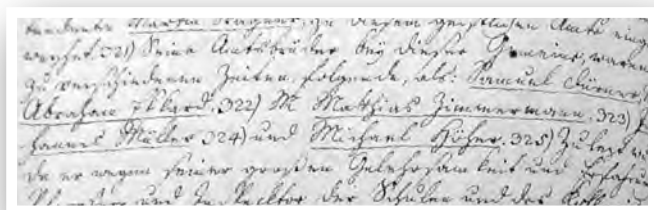 Martin Wagner, zu diesem geistlichen Amte
321) Seine Amtsbrüder bey dieser Gemeine, waren
zu verschiedenen Zeiten, folgende, als: Samuel Dürner,
Abraham Eckard. 322) M Matthias Zimmermann. 323)
hannes Müller 324) und Michael Höher. 325) Zuletzt
da er wegen seiner großen Gelehrsamkeit und Erfahrung
und Inspector der Schulen und des